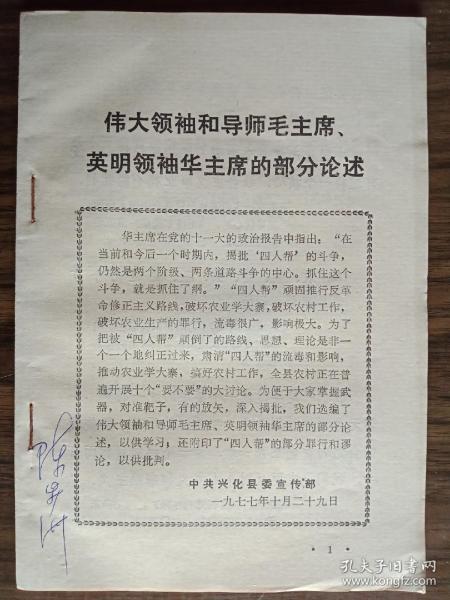 伟大领袖和导师毛主席、
英明领袖华主席的部分论述
华主席在党的十一大的政治报告中指出：“在
当前和今后一个时期内，揭批‘四人帮’的斗争，
仍然是两个阶级、两条道路斗争的中心。抓住这个
斗争，就是抓住了纲。”“四人帮”顽固推行反革
命修正主义路线，破坏农业学大寨，破坏农村工作，
破坏农业生产的罪行，流毒很广，影响极大。为了
把被“四人帮”颠倒了的路线、思想、理论是非一
个一个地纠正过来，肃清“四人帮”的流毒和影响，
推动农业学大寨，搞好农村工作，全县农村正在普
遍开展十个“要不要”的大讨论。为便于大家掌握武
器，对准靶子，有的放矢，深入揭批，我们选编了
伟大领袖和导师毛主席、英明领袖华主席的部分论
述，以供学习；还附印了“四人帮”的部分罪行和谬
论，以供批判。
中共兴化县委宣传部
一九七七年十月二十九日
·1·
孔夫子旧书网
www.kongfz.com